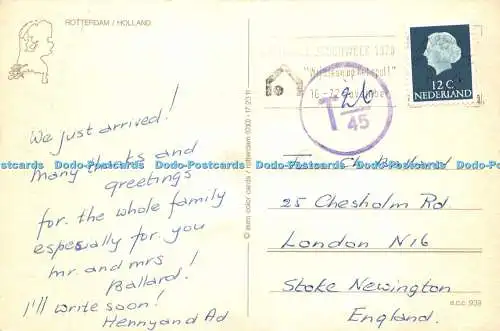 ROTTERDAM / HOLLAND
We just arrived!
Many thanks and
greetings
for the whole family
especially for you
mr. and mrs
Ballard!
I'll write soon!
Henny and Ad
© euro color cards / rotterdam
1970
16-22 november
T 26
45
12 C
NEDERLAND
Ballard
25 Chesholm Rd.
London N16
Stoke Newington
England.
e.c.c. 939
Dodo-Postcards Dodo-Postcards Dodo-Postcards Dodo-Postcards Dodo-Postcards